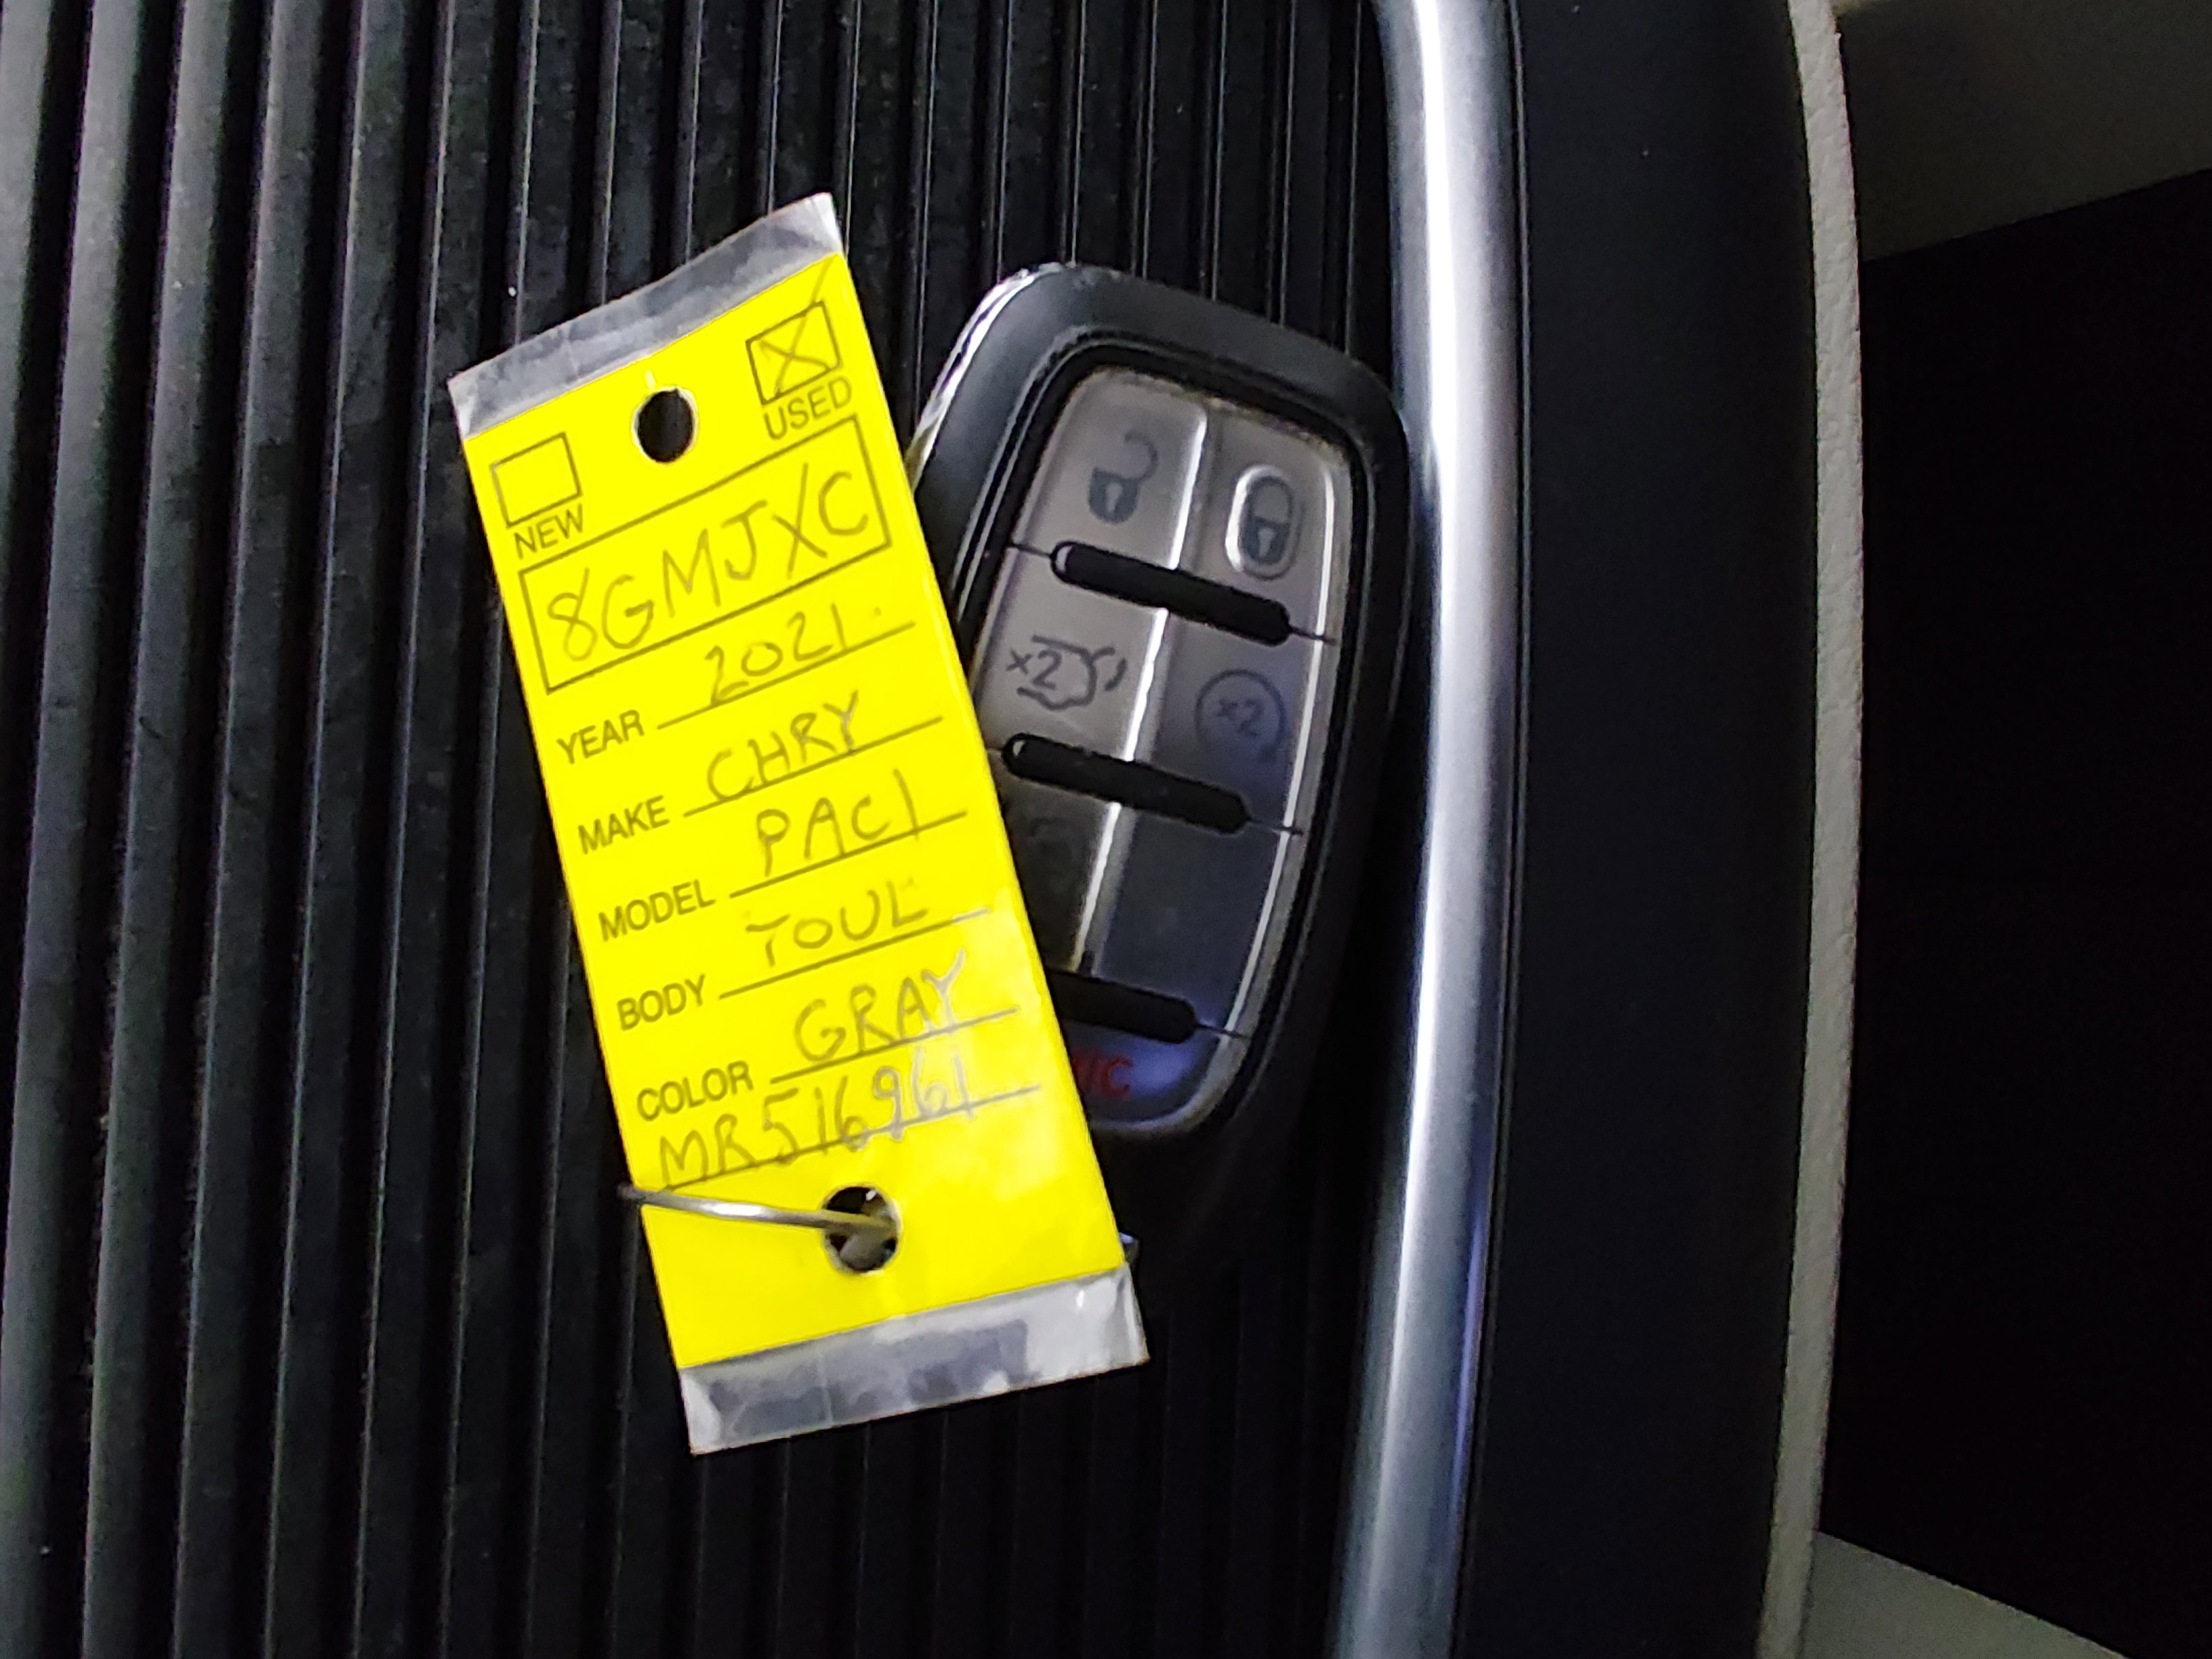 USED
NEW
8GMJXC
YEAR 2021
MAKE CHRY
MODEL PACI
BODY TOUL
COLOR GRAY
MR516961
×2
×2